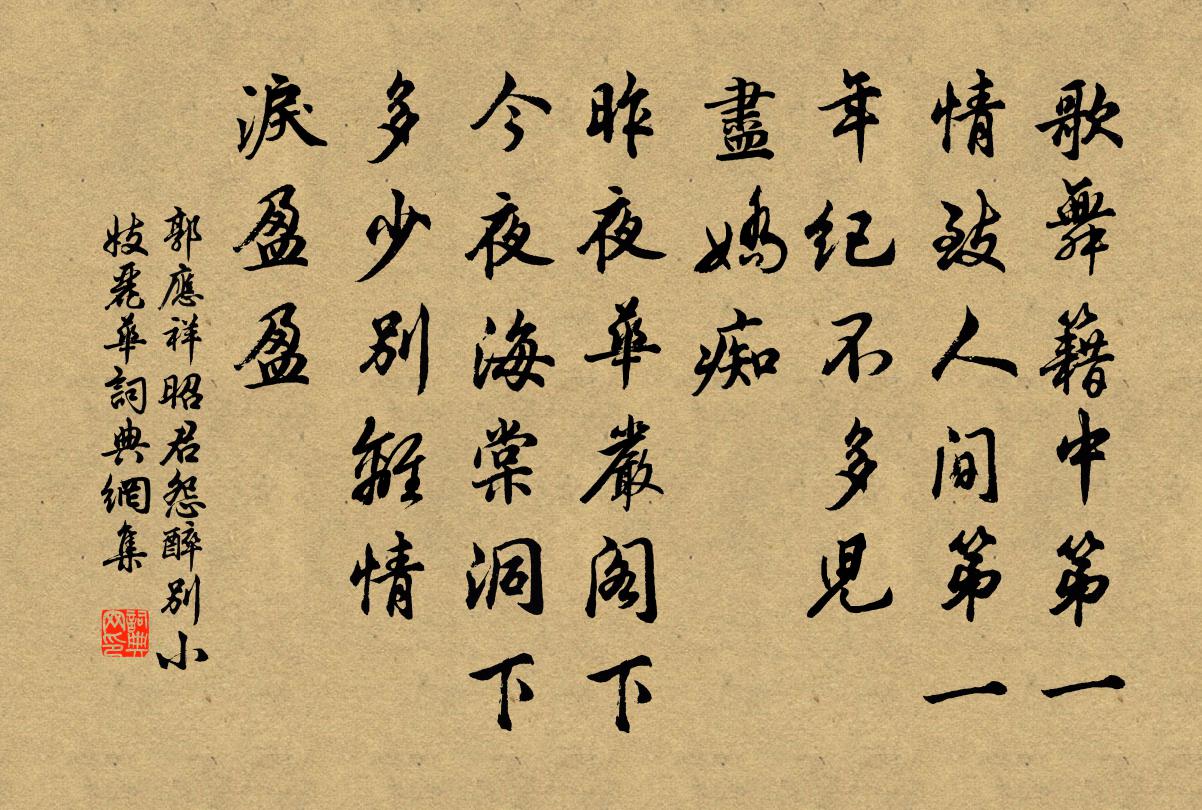 歌舞籍中第一
情致人間第一
年紀不多兒
盡嬌痴
昨夜華嚴閣下
今夜海棠洞下
多少別離情
淚盈盈
郭應祥昭君怨醉別小
妓麗華詞典網集
詞典網印